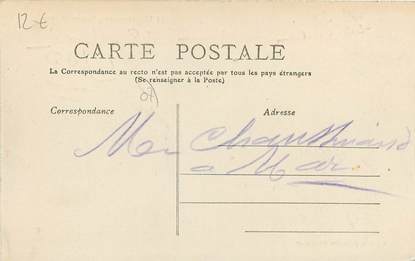 12 €
CARTE POSTALE
La Correspondance au recto n'est pas acceptée par tous les pays étrangers
(Se renseigner à la Poste)
Correspondance
Adresse
à